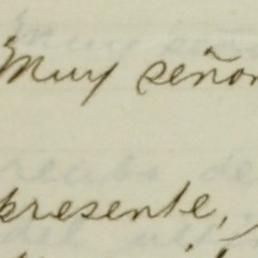 Muy señor
presente,